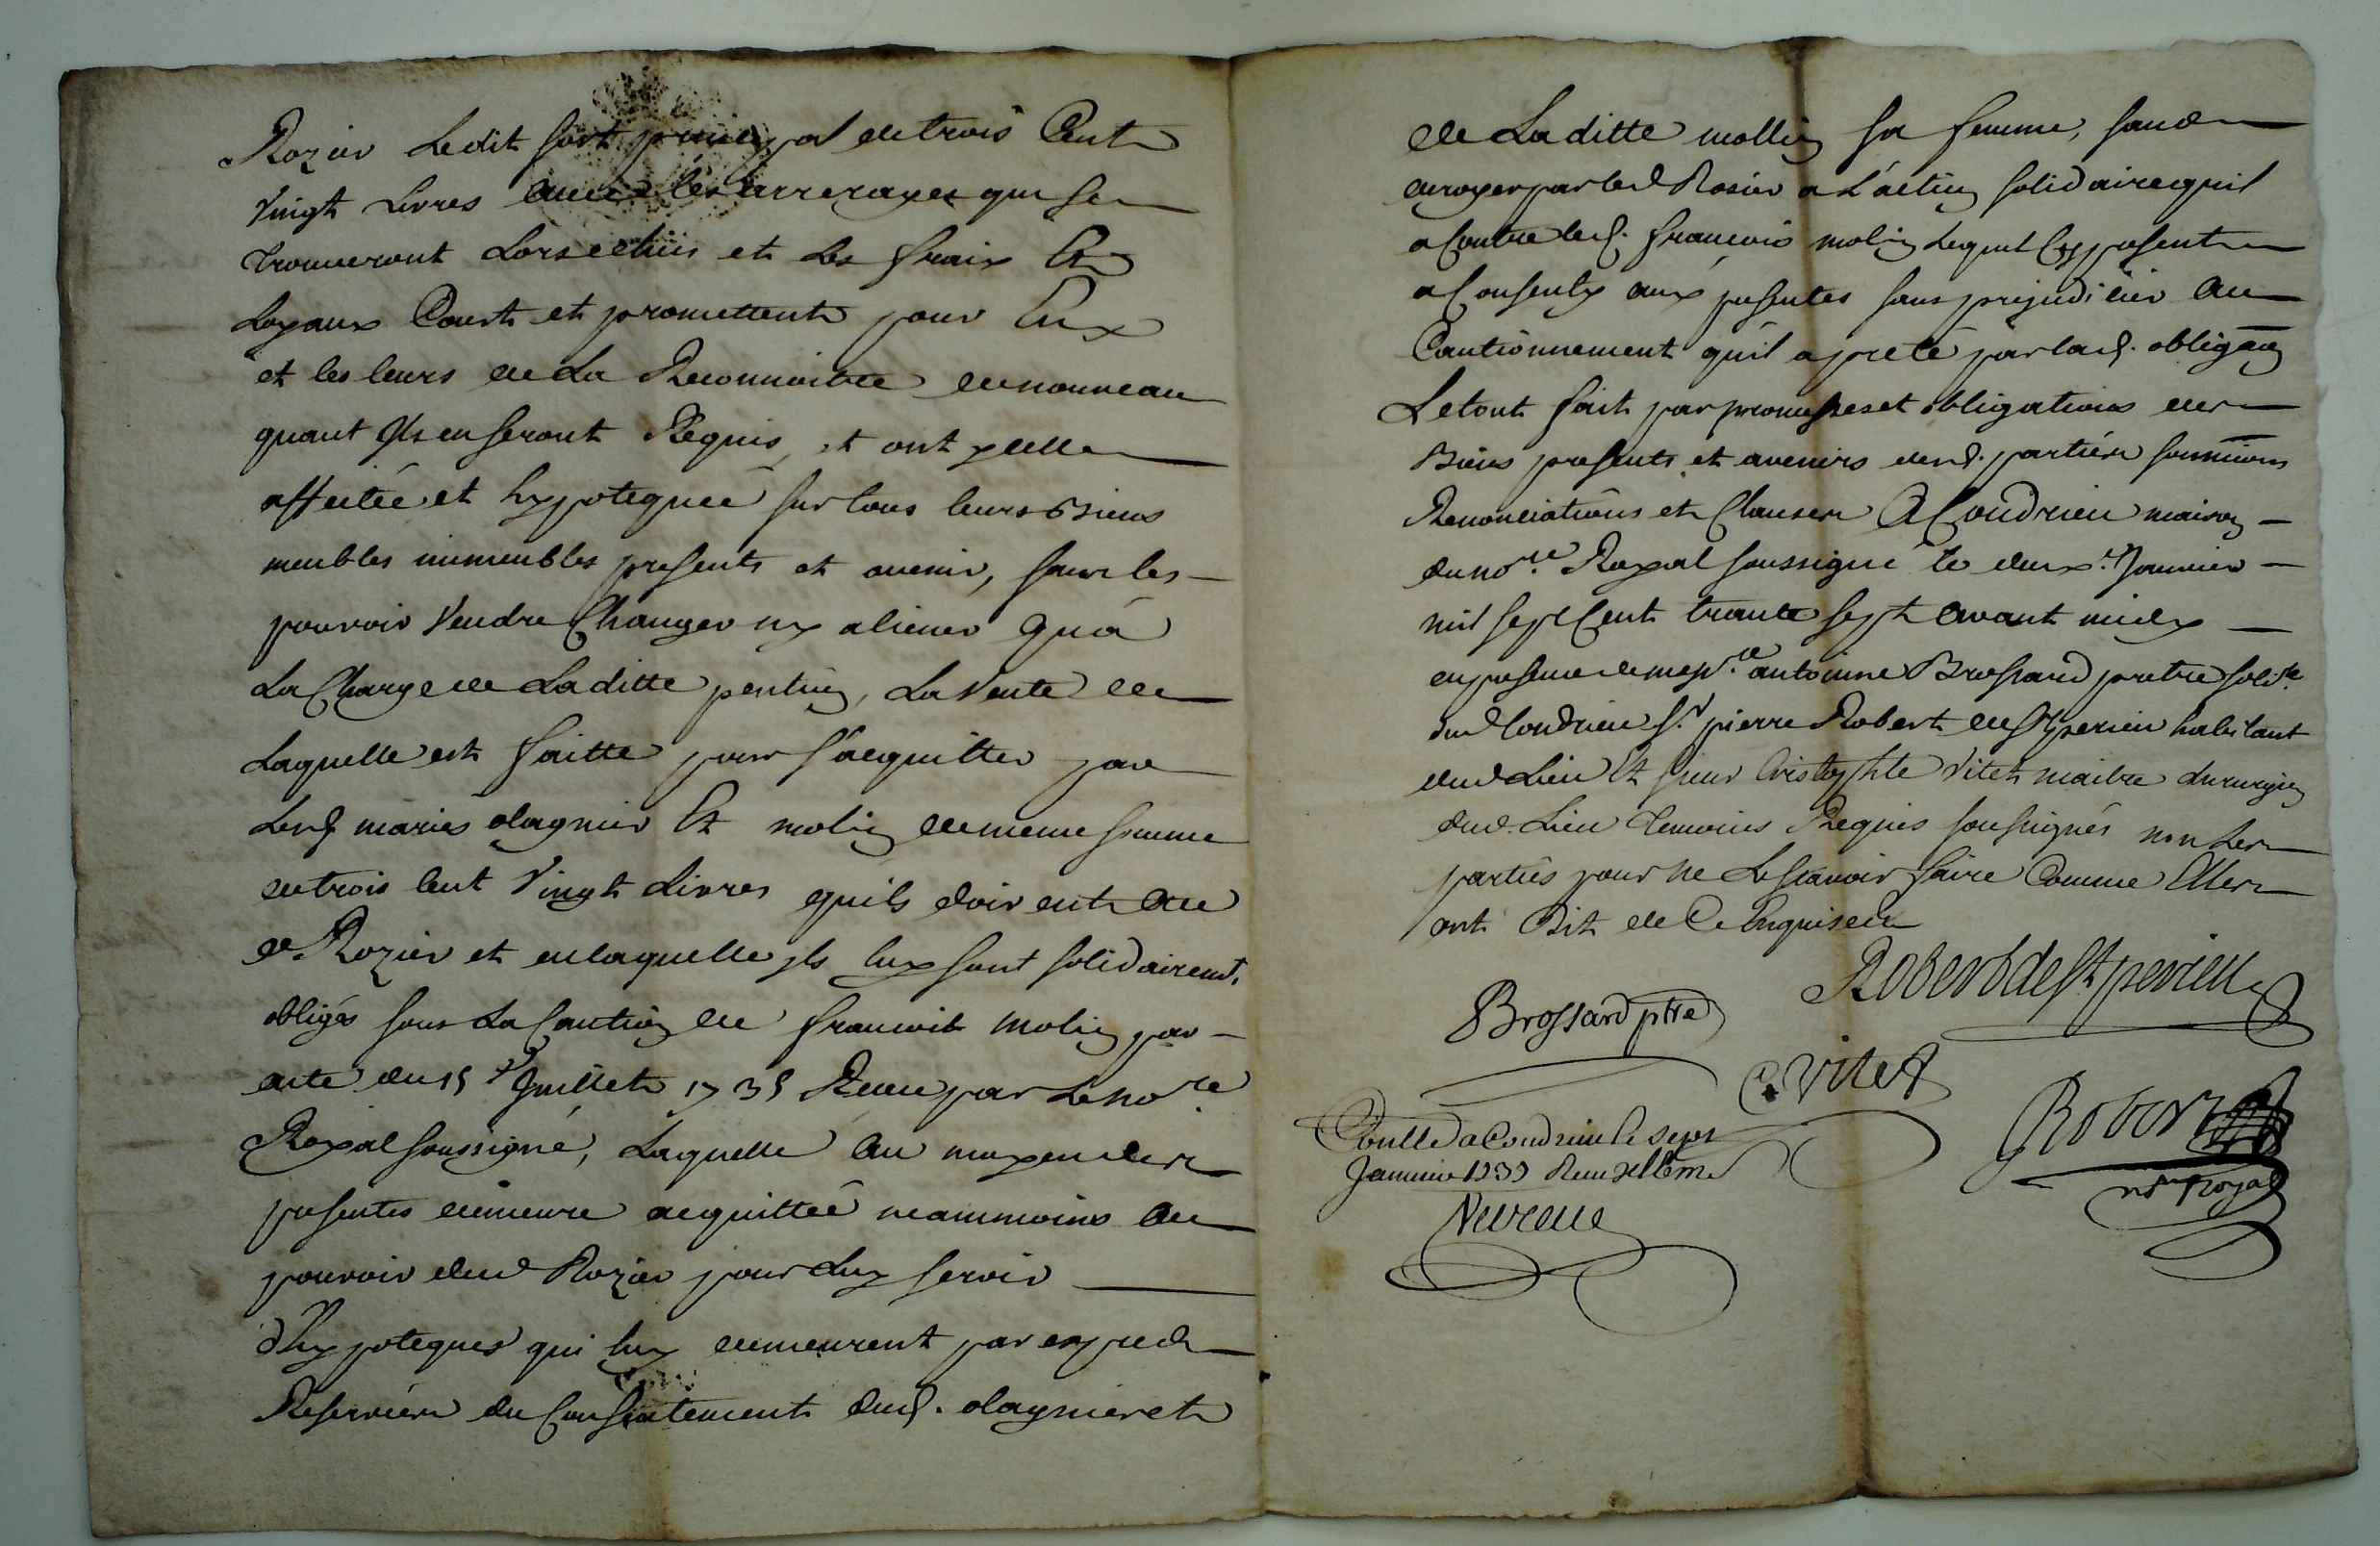 Rozier Ledit sort principal de trois Cent
vingt Livres avec les arrerages qui se
trouveront Lors echus et les frais Et
Loyaux Couts et promettent pour Eux
et les leurs de La Reconnoitre de nouveau
quant Ils en seront Requis, et ont y celle
affectée et hypotequée sur tous leurs Biens
meubles immeubles presents et avenir, sans les
pouvoir Vendre Changer ny aliener qu'á
La Charge de Laditte pention, La Vente de
Laquelle est faitte pour s'acquitter par
Lesd. mariés olagnier Et molin de meme somme
de trois Cent Vingt Livres quils doivent au
d. Rozier et en laquelle jls luy sont solidairemt.
obligés sous La Caution de francois molin par
acte du 15e. Juillet 1735 Receu par Le nore.
Royal soussigné, Laquelle au moyen des
presentes demeure acquittée neammoins au
pouvoir dud Rozier pour Luy servir
d'hypoteques qui luy demeurent par exprès
Reservées du Consentement dud. olagnier et
de Laditte mollin sa femme, sans
deroger par led Rosier a L'action solidaire quil
a Contre led. francois molin Lequel Cy present
a Consenty aux presentes sans prejudicier au
Cautionnement qu'il a preté par lad. obligaon
Le tout fait par promesses et obligations des
Biens presents et avenirs desd. parties soumiions
Renonciations et Clauses A Condrieu maison
du nore. Royal soussigné le deuxe. Janvier
mil sept Cent trante sept avant midy
en presence de messre. antoinne Brossard pretre solitre.
dud Condrieu Sr. pierre Robert de St perieu habitant
dud Lieu Et sieur Cristophle Vitet maitre chirurgien
dud. Lieu temoins Requis soussignés non Les
parties pour ne Le scavoir faire Comme Elles
ont Dit de Ce Enquises
Brossard ptre Robert de St perieu
C. Vitet
Controllé a Condrieu le sept Robert
Janvier 1737 Receu
nore Royal